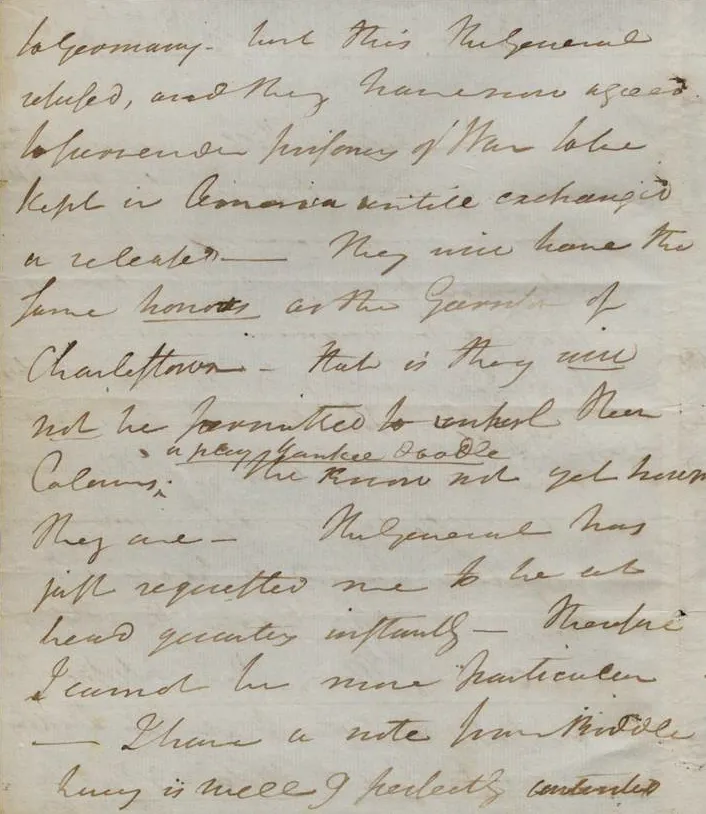 to Germany - but this the General
refused, and they have now agreed
to surrender prisoners of War to be
kept in America untill exchanged
or released — They will have the
same honors as the Garrison of
Charlestown - that is they will
not be permitted to unfurl their
or play Yankee doodle
Colours; We know not yet how many
they are — The General has
just requested me to be at
head quarters instantly — therefore
I cannot be more particular
— I have a note from Biddle
is well & perfectly contented